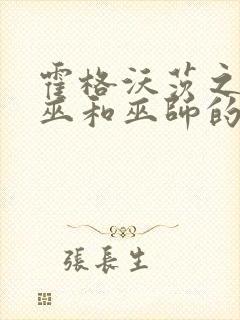 霍格沃茨之
巫和巫師的
張長生